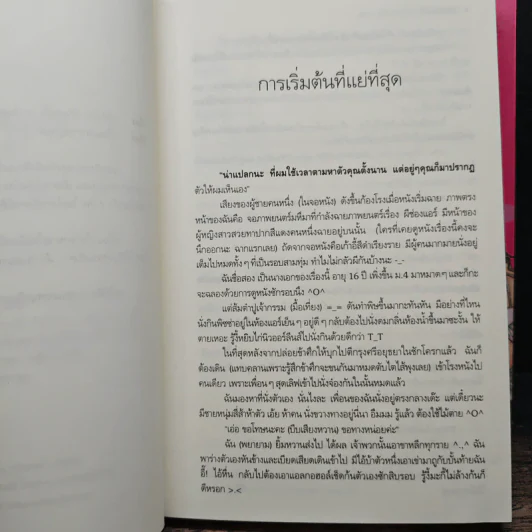 การเริ่มต้นที่แย่ที่สุด
"น่าแปลกนะ ที่ผมใช้เวลาตามหาตัวคุณตั้งนาน แต่อยู่ๆคุณก็มาปรากฏ
ตัวให้ผมเห็นเอง"
เสียงของผู้ชายคนหนึ่ง (ในจอหนัง) ดังขึ้นก้องโรงเมื่อหนังเริ่มฉาย ภาพตรง
หน้าของฉันคือ จอภาพยนตร์มหึมาที่กำลังฉายภาพยนตร์เรื่อง ผีช่องแอร์ มีหน้าของ
ผู้หญิงสาวสวยทาปากสีแดงคนหนึ่งฉายอยู่บนนั้น (ใครที่เคยดูหนังเรื่องนี้คงจะ
นึกออกนะ ฉากแรกเลย) ถัดจากจอหนังคือเก้าอี้สีดำเรียงราย มีผู้คนมากมายนั่งอยู่
เต็มไปหมดทั้งๆ ที่เป็นรอบสามทุ่ม ทำไมไม่กลัวผีกันบ้างนะ -_-
ฉันชื่อสอง เป็นนางเอกของเรื่องนี้ อายุ 16 ปี เพิ่งขึ้น ม.4 มาหมาดๆ และก็กะ
จะฉลองด้วยการดูหนังซักรอบนึง ^O^
แต่ส้มตำปูเจ้ากรรม (มื้อเที่ยง) =_= ดันทำพิษขึ้นมากะทันหัน มีอย่างที่ไหน
นั่งกินพิซซ่าอยู่ในห้องแอร์เย็นๆ อยู่ดีๆ กลับต้องไปนั่งดมกลิ่นห้องน้ำขึ้นมาซะงั้น ให้
ตายเหอะ รู้งี้หยิบไก่นิวออร์ลีนส์ไปนั่งกินด้วยดีกว่า T_T
ในที่สุดหลังจากปล่อยข้าศึกให้บุกไปตีกรุงศรีอยุธยาในชักโครกแล้ว ฉันก็
ต้องเดิน (แทบคลานเพราะรู้สึกข้าศึกจะขนกันมาหมดตับไตไส้พุงเลย) เข้าโรงหนังไป
คนเดียว เพราะเพื่อนๆ สุดเลิฟเข้าไปนั่งจ๋องกันในนั้นหมดแล้ว
ฉันมองหาที่นั่งตัวเอง นั่นไงละ เพื่อนของฉันนั่งอยู่ตรงกลางเด๊ะ แต่เดี๋ยวนะ
มีชายหนุ่มสี่สิห้าตัว เอ้ย ห้าคน นั่งขวางทางอยู่นี่นา อืมมม รู้แล้ว ต้องใช้ไม้ตาย ^O^
"เอ่อ ขอโทษนะคะ (บีบเสียงหวาน) ขอทางหน่อยค่ะ"
ฉัน (พยายาม) ยิ้มหวานส่งไป ได้ผล เจ้าพวกนั้นเอาขาหลีกทุกราย ^_^ ฉัน
พาร่างตัวเองหันข้างและเบียดเสียดเดินเข้าไป มีไอ้บ้าตัวหนึ่งเอาเข่ามาถูกบั้นท้ายฉัน
อี๊! ไอ้หื่น กลับไปต้องเอาแอลกอฮอล์เช็ดก้นตัวเองซักสิบรอบ รู้งี้มะกี้ไม่ล้างก้นก็
ดีหรอก >.<